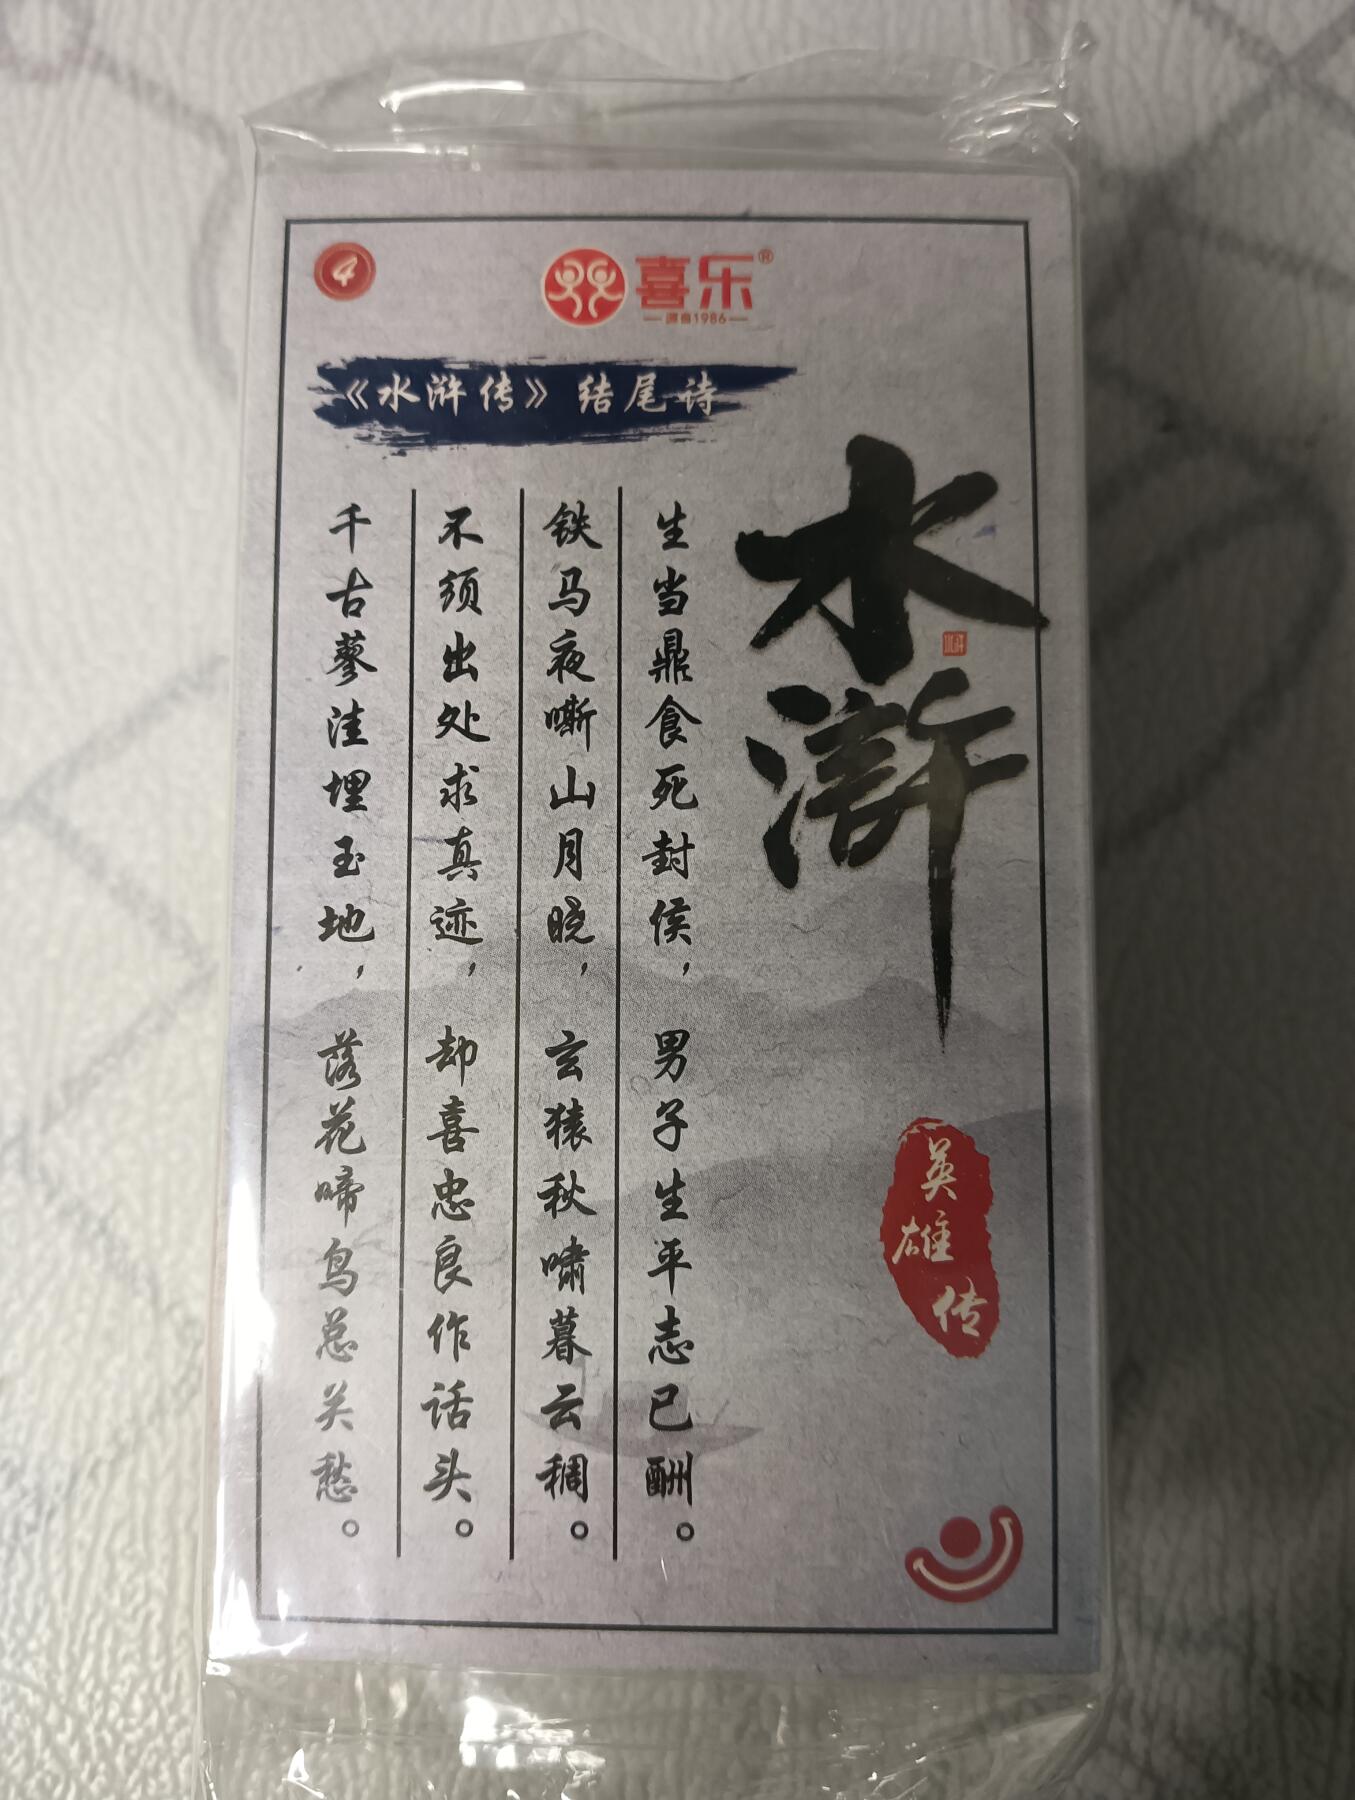 4
喜乐®
源自1986
《水浒传》结尾诗
水浒
英雄传
生当鼎食死封侯，男子生平志已酬。
铁马夜嘶山月晓，玄猿秋啸暮云稠。
不须出处求真迹，却喜忠良作话头。
千古蓼洼埋玉地，落花啼鸟总关愁。